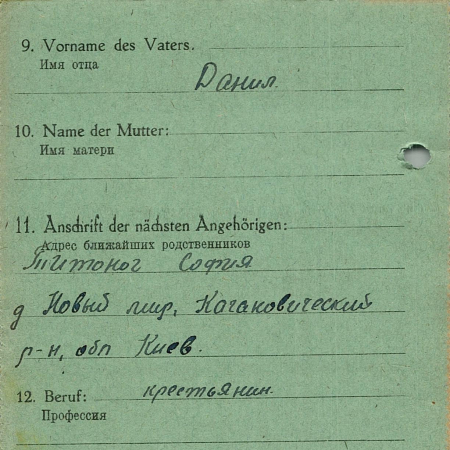 9. Vorname des Vaters.
Имя отца
Данил.
10. Name der Mutter:
Имя матери
11. Anschrift der nächsten Angehörigen:
Адрес ближайших родственников
Титоног София
д Новый мир, Кагановический
р-н, обл Киев.
12. Beruf: крестьянин.
Профессия